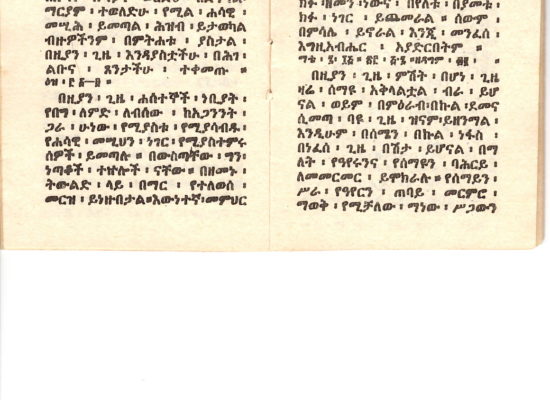 ማርያም ፡ ተወለድሁ ፡ የሚል ፡ ሐሳዊ ፡
መሢሕ ፡ ይመጣል ፡ ሕዝብ ፡ ይታወካል
ብዙዎችንም ፡ በምትሐቱ ፡ ያስታል
በዚያን ፡ ጊዜ ፡ እንዳያስቷችሁ ፡ በሕግ ፡
ልቡና ፡ ጸንታችሁ ፡ ተቀመጡ ።
በዚያን ፡ ጊዜ ፡ ሐሰተኞች ፡ ነቢያት ፡
የበግ ፡ ለምድ ፡ ለብሰው ፡ ከአጋንንት
ጋራ ፡ ሁነው ፡ የሚያስቱ ፡ የሚያሳብዱ ፡
የሐሳዊ ፡ መሢሀን ፡ ነገር ፡ የሚያስተምሩ
ሰዎች ፡ ይመጣሉ ። በውስጣቸው ፡ ግን ፡
ነጣቆች ፡ ተኵሎች ፡ ናቸው ። በዘመኑ ፡
ትውልድ ፡ ላይ ፡ በማር ፡ የተለወሰ ፡
መርዝ ፡ ይነዙበታል ። እውነተኛ ፡ መምህር
ክፉ ፡ ነገር ፡ ይጨመራል ። ሰውም ፡
በምሳሌ ፡ ይኖራል ፡ እንጂ ፡ መንፈሰ
እግዚአብሔር ፡ አያድርበትም ።
በዚያን ፡ ጊዜ ፡ ምሽት ፡ በሆነ ፡ ጊዜ
ዛሬ ፡ ሰማዩ ፡ አቅላልቷል ፡ ብራ ፡ ይሆ
ናል ፡ ወይም ፡ በምዕራብ ፡ በኩል ፡ ደመና
ሲመጣ ፡ ባዩ ፡ ጊዜ ፡ ዝናም ፡ ይዘንማል
እንዲሁም ፡ በሰሜን ፡ በኩል ፡ ነፋስ ፡
በነፈሰ ፡ ጊዜ ፡ በሽታ ፡ ይሆናል ፡ በማ
ለት ፡ የዓየሩንና ፡ የሰማዩን ፡ ባሕርይ
ለመመርመር ፡ ይሞክራሉ ። የሰማይን ፡
ሥራ ፡ የዓየርን ፡ ጠባይ ፡ መርምሮ ፡
ማወቅ ፡ የሚቻለው ፡ ማነው ፡ ሥጋውን